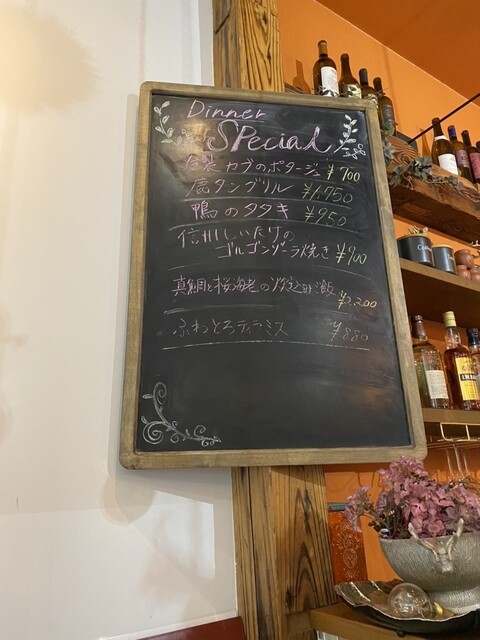 Dinner
SPecial
カブのポタージュ ¥700
鹿タングリル ¥1,750
鴨のタタキ ¥950
信州しいたけの
ゴルゴンゾーラ焼き ¥900
真鯛と桜海老の炊込みご飯 ¥2,200
ふわとろティラミス ¥880